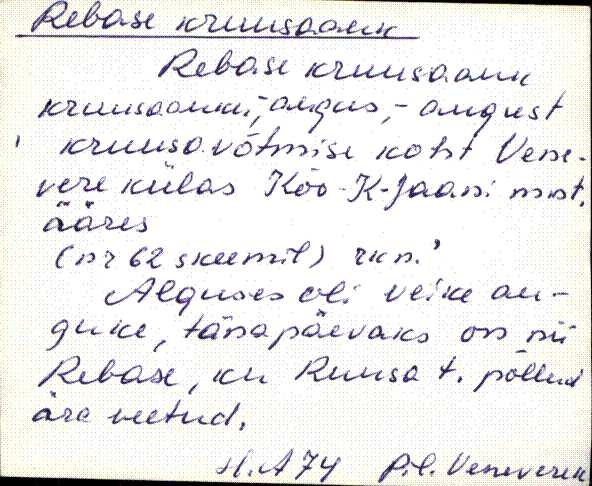 Rebase kruusaauk
Rebase kruusaauk
kruusaauku, -augus, -august
' kruusavõtmise koht Vene-
vere külas Kõo-K-Jaani mnt.
ääres
(nr 62 skeemil) rkn.'
Alguses oli veike au-
guke, tänapäevaks on nii
Rebase, ku Ruusa t. põllud
ära veetud.
H. A 74 P.-l. Venevere k